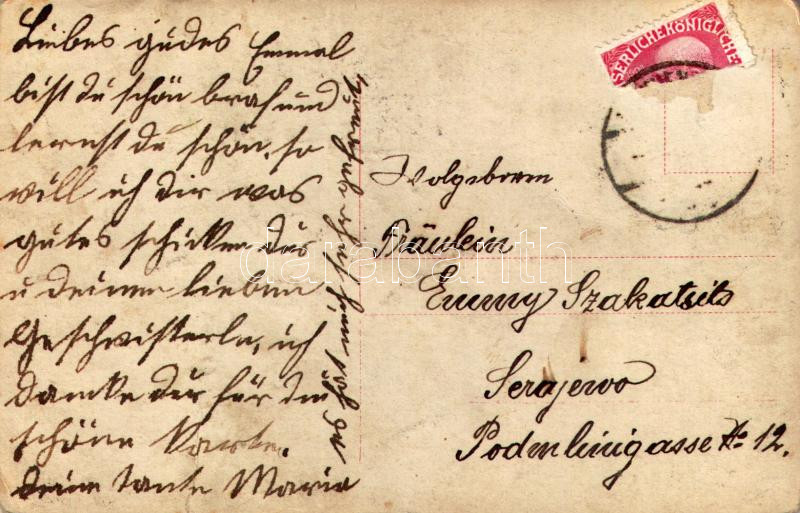 Liebes gudes Emmal
bist du schön brav und
lernst du schön, so
will ich dir was
gutes schicken dir
u deinen lieben
Geschwisterln, ich
danke dir für die
schöne Karte.
deine tante Maria
es hat mich sehr gefreut
Wolgeboren
Fräulein
Emmy Szakatsits
Serajewo
Podmlinigasse No 12.
SERLICHEKÖNIGLICHE
darabanth